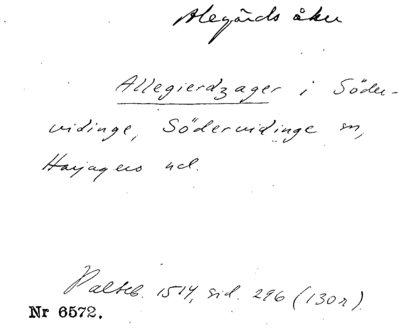 Alegårds åker
Allegierdzager i Söder-
vidinge, Södervidinge sn,
Harjagers hd.
Palteb. 1514, sid. 296 (130r).
Nr 6572.